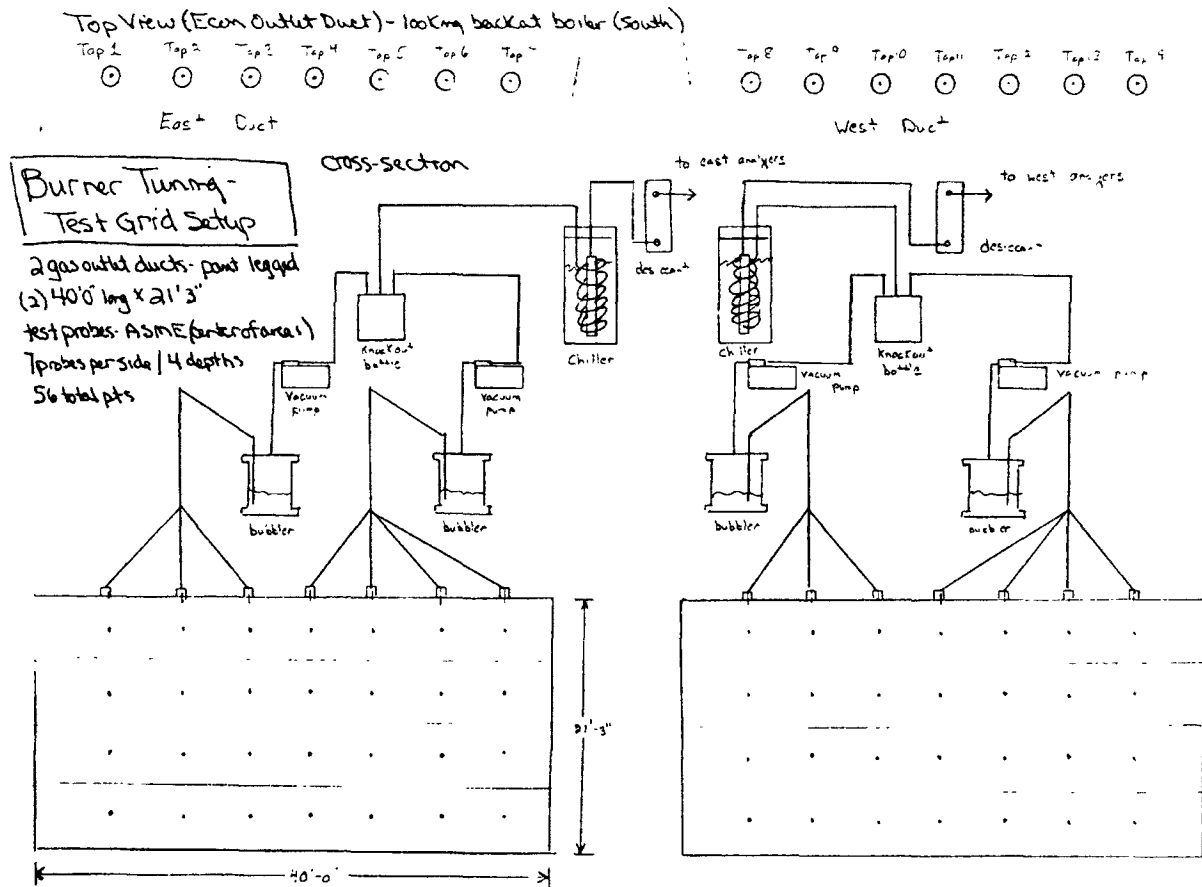 Top View (Econ Outlet Duct) - looking back at boiler (south)
Tap 1 Tap 2 Tap 3 Tap 4 Tap 5 Tap 6 Tap 7 Tap 8 Tap 9 Tap 10 Tap 11 Tap 12 Tap 13 Tap 14
East Duct West Duct
cross-section
Burner Tuning -
Test Grid Setup
2 gas outlet ducts - pant legged
(2) 40'0" long x 21'3"
test probes - ASME (center of areas)
7 probes per side / 4 depths
56 total pts
to east analyzers
to west analyzers
desiccant
desiccant
Chiller
Chiller
Knockout
bottle
Knockout
bottle
vacuum
pump
vacuum
pump
vacuum
pump
vacuum pump
bubbler
bubbler
bubbler
bubbler
21'-3"
40'-0"